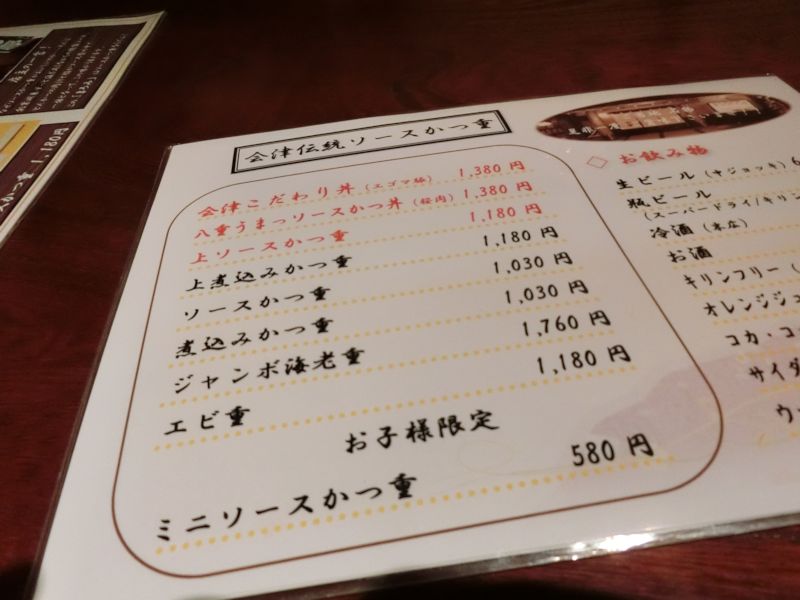 会津伝統ソースかつ重
会津こだわり丼（エゴマ豚） 1,380 円
八重うまっソースかつ丼（桜肉） 1,380 円
上ソースかつ重 1,180 円
上煮込みかつ重 1,180 円
ソースかつ重 1,030 円
煮込みかつ重 1,030 円
ジャンボ海老重 1,760 円
エビ重 1,180 円
お子様限定
ミニソースかつ重 580 円
お飲み物
生ビール（中ジョッキ） 6
瓶ビール
（スーパードライ/キリン
冷酒（末広）
お酒
キリンフリー（
オレンジジュ
コカ・コ
サイダ
ウ
スかつ重 1,180円